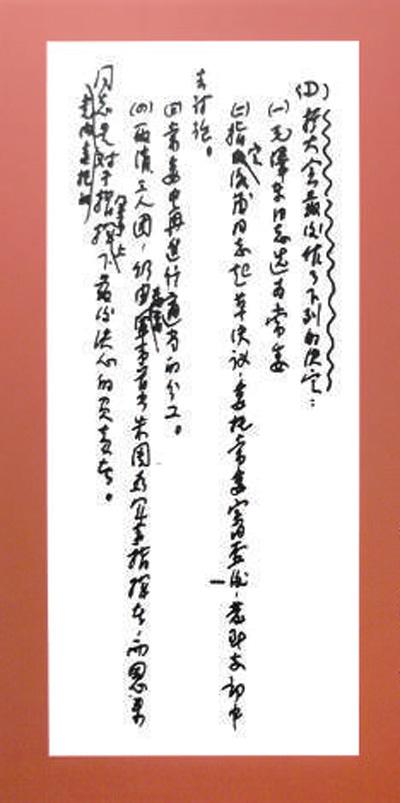 (D)扩大会最后作了下列的决定：
(一)毛澤东同志选为常委
(二)指定洛甫同志起草决议，委托常委审查后，发到支部中
去讨论。
(三)常委中再进行适当的分工。
(四)取消三人团，仍由最高军事首长朱周为军事指挥者，而恩来
同志是党内委托的对于指挥军事上下最后决心的负责者。